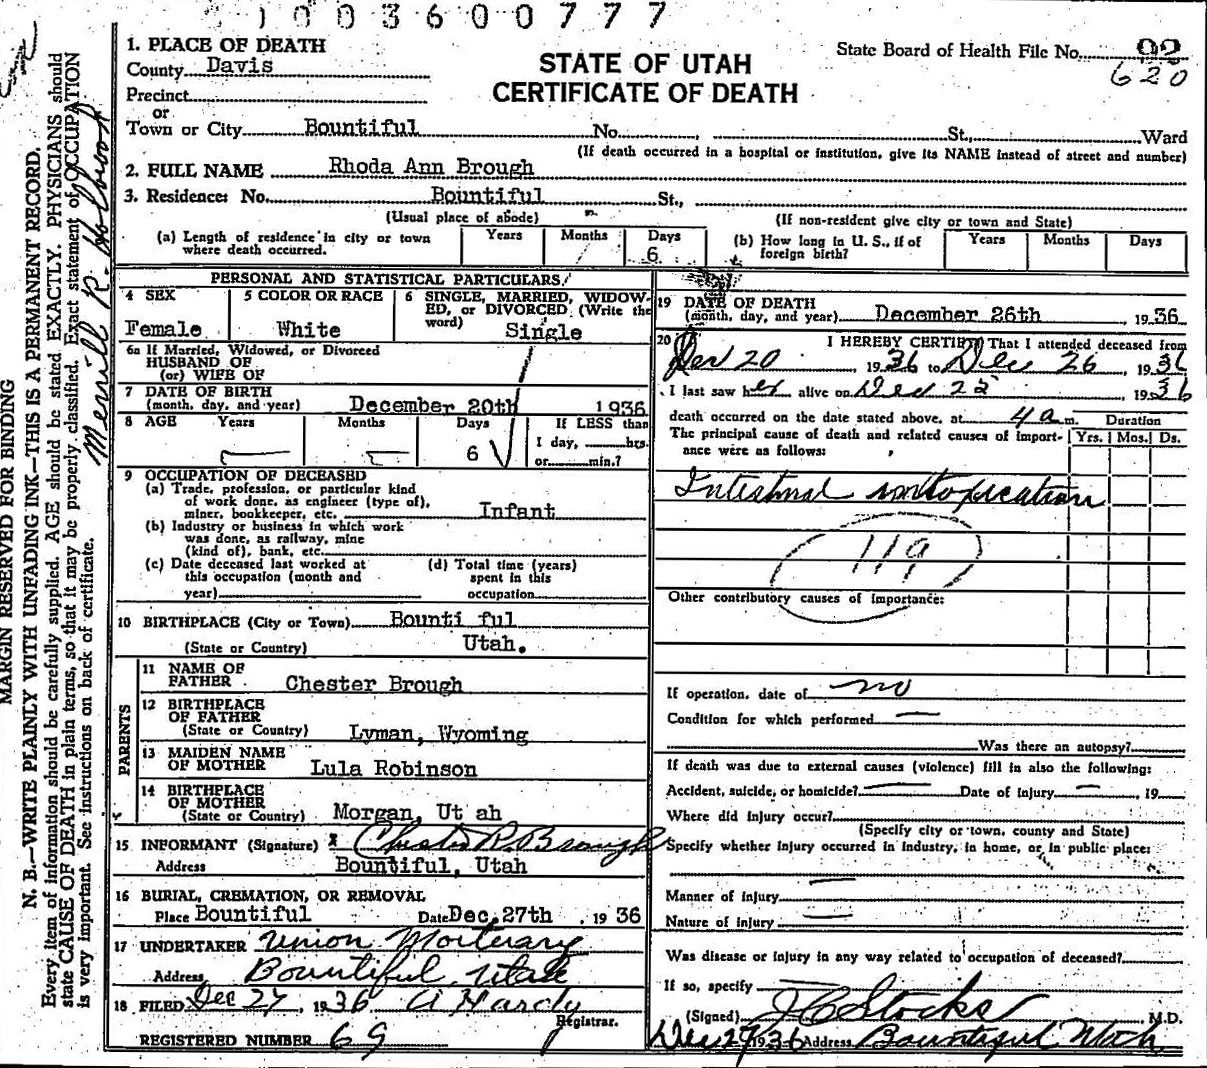 1003600777
1. PLACE OF DEATH
County Davis
Precinct
or
Town or City Bountiful No. , St., Ward
STATE OF UTAH
CERTIFICATE OF DEATH
State Board of Health File No. 92
620
(If death occurred in a hospital or institution, give its NAME instead of street and number)
2. FULL NAME Rhoda Ann Brough
3. Residence: No. Bountiful St.,
(Usual place of abode) (If non-resident give city or town and State)
(a) Length of residence in city or town where death occurred. Years Months Days 6
(b) How long in U. S., if of foreign birth? Years Months Days
PERSONAL AND STATISTICAL PARTICULARS
4 SEX Female
5 COLOR OR RACE White
6 SINGLE, MARRIED, WIDOWED, or DIVORCED (Write the word) Single
6a If Married, Widowed, or Divorced
HUSBAND OF
(or) WIFE OF
7 DATE OF BIRTH
(month, day, and year) December 20th 1936
8 AGE Years Months Days 6 If LESS than
1 day, hrs.
or min.?
9 OCCUPATION OF DECEASED
(a) Trade, profession, or particular kind
of work done, as engineer (type of),
miner, bookkeeper, etc. Infant
(b) Industry or business in which work
was done, as railway, mine
(kind of), bank, etc.
(c) Date deceased last worked at
this occupation (month and
year)
(d) Total time (years)
spent in this
occupation
10 BIRTHPLACE (City or Town) Bounti ful
(State or Country) Utah.
PARENTS
11 NAME OF
FATHER Chester Brough
12 BIRTHPLACE
OF FATHER
(State or Country) Lyman, Wyoming
13 MAIDEN NAME
OF MOTHER Lula Robinson
14 BIRTHPLACE
OF MOTHER
(State or Country) Morgan, Ut ah
15 INFORMANT (Signature) x Chester R. Brough
Address Bountiful, Utah
16 BURIAL, CREMATION, OR REMOVAL
Place Bountiful Date Dec. 27th , 1936
17 UNDERTAKER Union Morturary
Address Bountiful Utah
18 FILED Dec 27, 1936 A Hardy
Registrar.
REGISTERED NUMBER 69
19 DATE OF DEATH
(month, day, and year) December 26th , 1936
20 I HEREBY CERTIFY That I attended deceased from
Dec 20, 1936 to Dec 26, 1936
I last saw her alive on Dec 25, 1936
death occurred on the date stated above, at 4 a m. Duration
The principal cause of death and related causes of importance were as follows: Yrs. Mos. Ds.
Intestinal intoxication
119
Other contributory causes of importance:
If operation, date of no
Condition for which performed —
Was there an autopsy?
If death was due to external causes (violence) fill in also the following:
Accident, suicide, or homicide? — Date of injury — , 19
Where did injury occur?
(Specify city or town, county and State)
Specify whether injury occurred in industry, in home, or in public place:
Manner of injury —
Nature of injury —
Was disease or injury in any way related to occupation of deceased?
If so, specify
(Signed) J C Stocks , M.D.
Dec 27 1936 Address Bountiful Utah
MARGIN RESERVED FOR BINDING
N. B.—WRITE PLAINLY WITH UNFADING INK—THIS IS A PERMANENT RECORD.
Every item of information should be carefully supplied. AGE should be stated EXACTLY. PHYSICIANS should
state CAUSE OF DEATH in plain terms, so that it may be properly classified. Exact statement of OCCUPATION
is very important. See instructions on back of certificate.
Merrill R. Holbrook